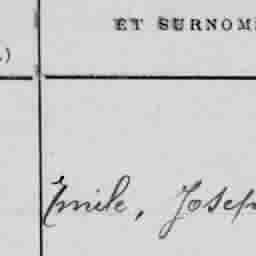 ET SURNOM
Emile, Josep